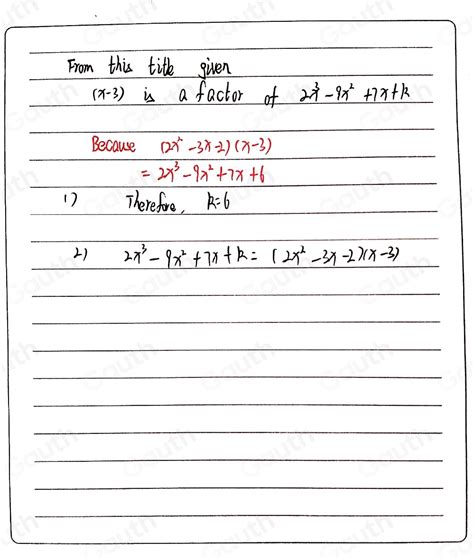 From this title given
(x-3) is a factor of 2x³-9x²+7x+k
Because (2x²-3x-2)(x-3)
= 2x³-9x²+7x+6
1) Therefore, k=6
2) 2x³-9x²+7x+k=(2x²-3x-2)(x-3)